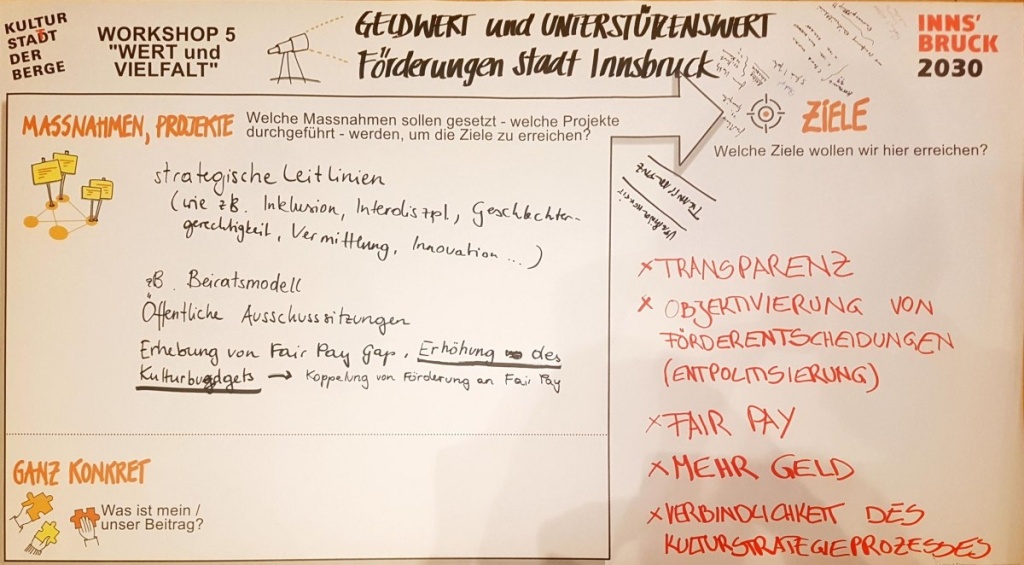 KULTUR
STADT
DER
BERGE
WORKSHOP 5
"WERT und
VIELFALT"
GELDWERT und UNTERSTÜTZENSWERT
Förderungen Stadt Innsbruck
INNS'
BRUCK
2030
MASSNAHMEN, PROJEKTE
Welche Massnahmen sollen gesetzt - welche Projekte
durchgeführt - werden, um die Ziele zu erreichen?
strategische Leitlinien
(wie zB. Inklusion, Interdiszpl., Geschlechter-
gerechtigkeit, Vermittlung, Innovation ...)
zB. Beiratsmodell
Öffentliche Ausschusssitzungen
Erhebung von Fair Pay Gap, Erhöhung des
Kulturbudgets → Koppelung von Förderung an Fair Pay
GANZ KONKRET
Was ist mein /
unser Beitrag?
ZIELE
Welche Ziele wollen wir hier erreichen?
TRANSPARENZ
x TRANSPARENZ
x OBJEKTIVIERUNG VON
FÖRDERENTSCHEIDUNGEN
(ENTPOLITISIERUNG)
x FAIR PAY
x MEHR GELD
x VERBINDLICHKEIT DES
KULTURSTRATEGIEPROZESSES